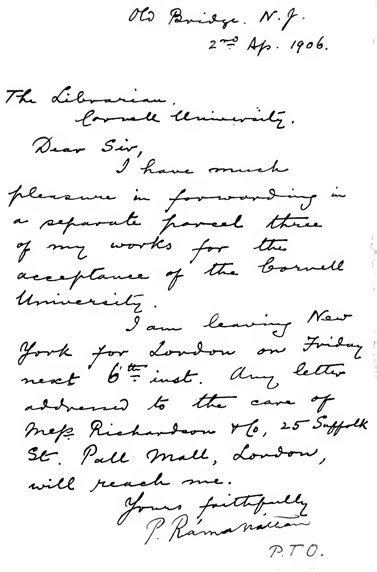 Old Bridge. N. J.
2nd Ap. 1906.
The Librarian.
Cornell University.
Dear Sir,
I have much
pleasure in forwarding in
a separate parcel three
of my works for the
acceptance of the Cornell
University.
I am leaving New
York for London on Friday
next 6th inst. Any letter
addressed to the care of
Messrs. Richardson & Co, 25 Suffolk
St. Pall Mall, London,
will reach me.
Yours faithfully
P. Ramanathan
P.T.O.